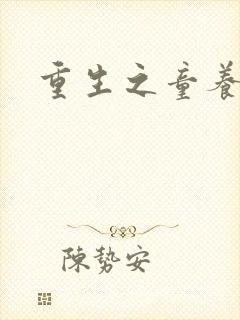 重生之童養
陳勢安